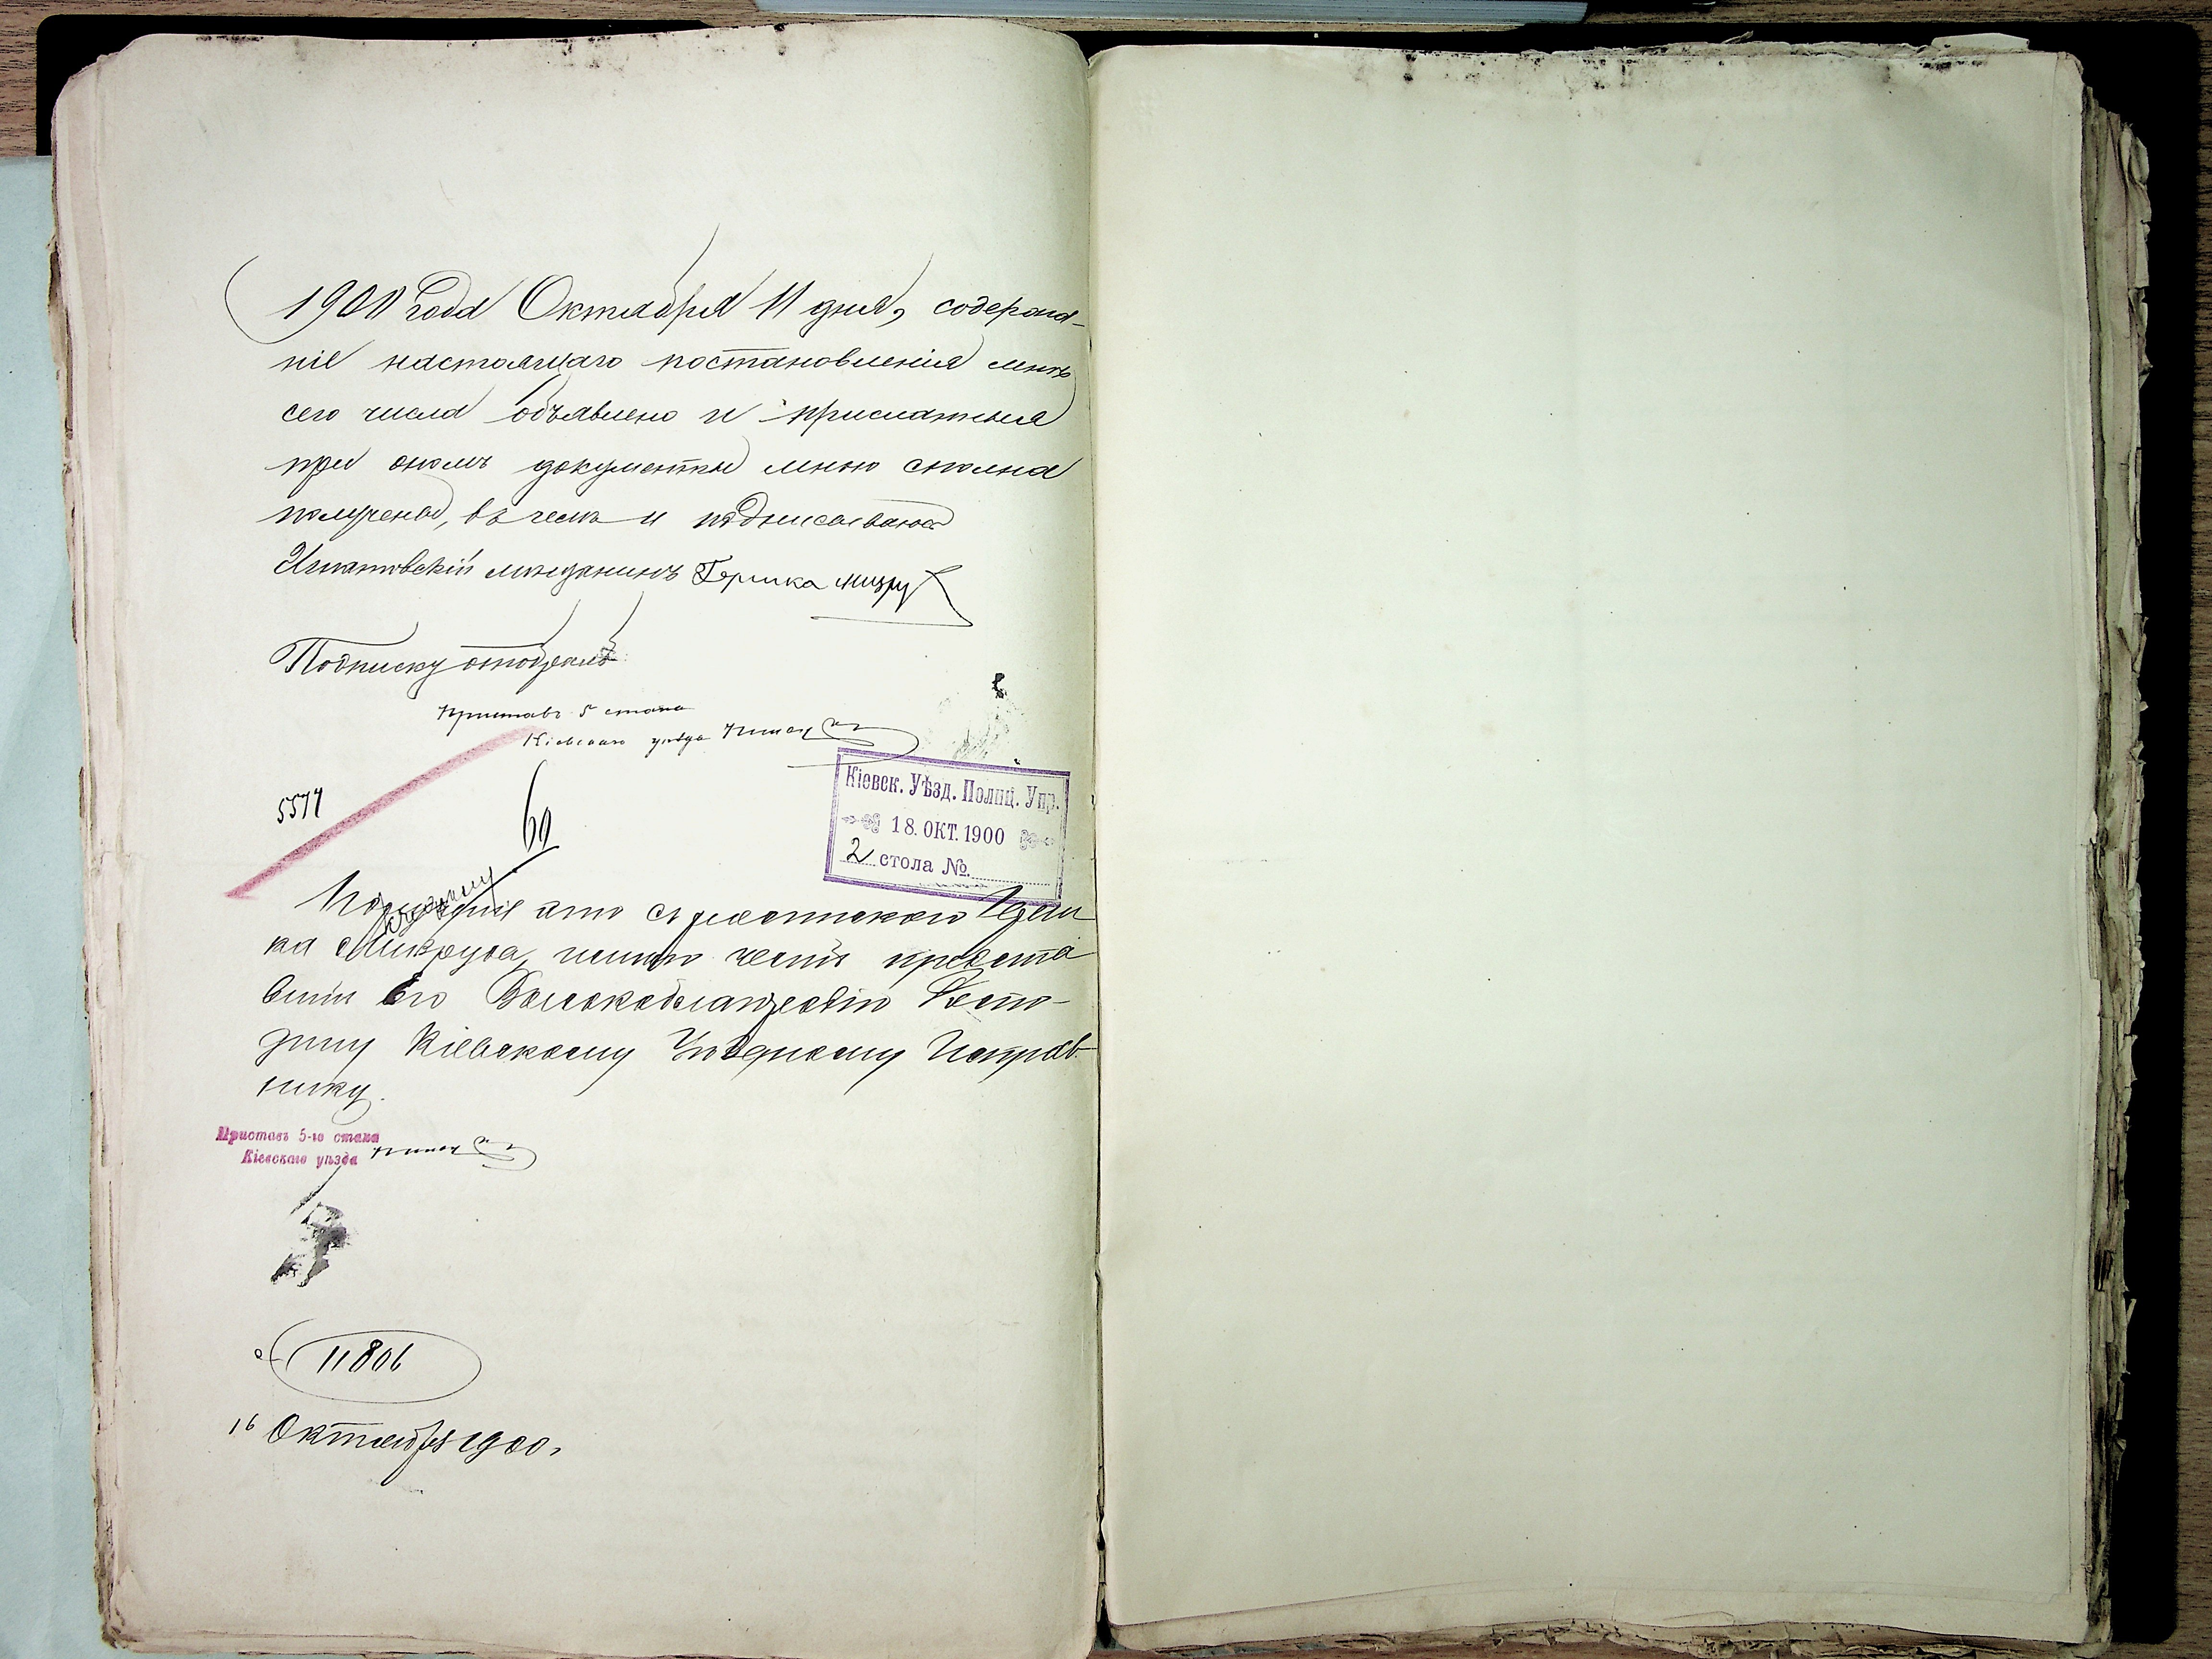 1900 года Октября 11 дня, содержа-
ніе настоящаго постановленія мнѣ
сего числа объявлено и приложенныя
при ономъ документы мною сполна
получены, въ чемъ и подписываюсь
Игнатовскій мѣщанинъ Гершка
Подписку отобралъ
Приставъ 5 стана
Кіевскаго уѣзда
5574
Кіевск. Уѣзд. Полиц. Упр.
18. ОКТ. 1900
2 стола №
имѣю честь предста
вить Его Высокоблагородію Госпо-
дину Кіевскому Уѣздному Исправ-
нику.
Приставъ 5-го стана
Кіевскаго уѣзда
11806
16 Октября 1900.